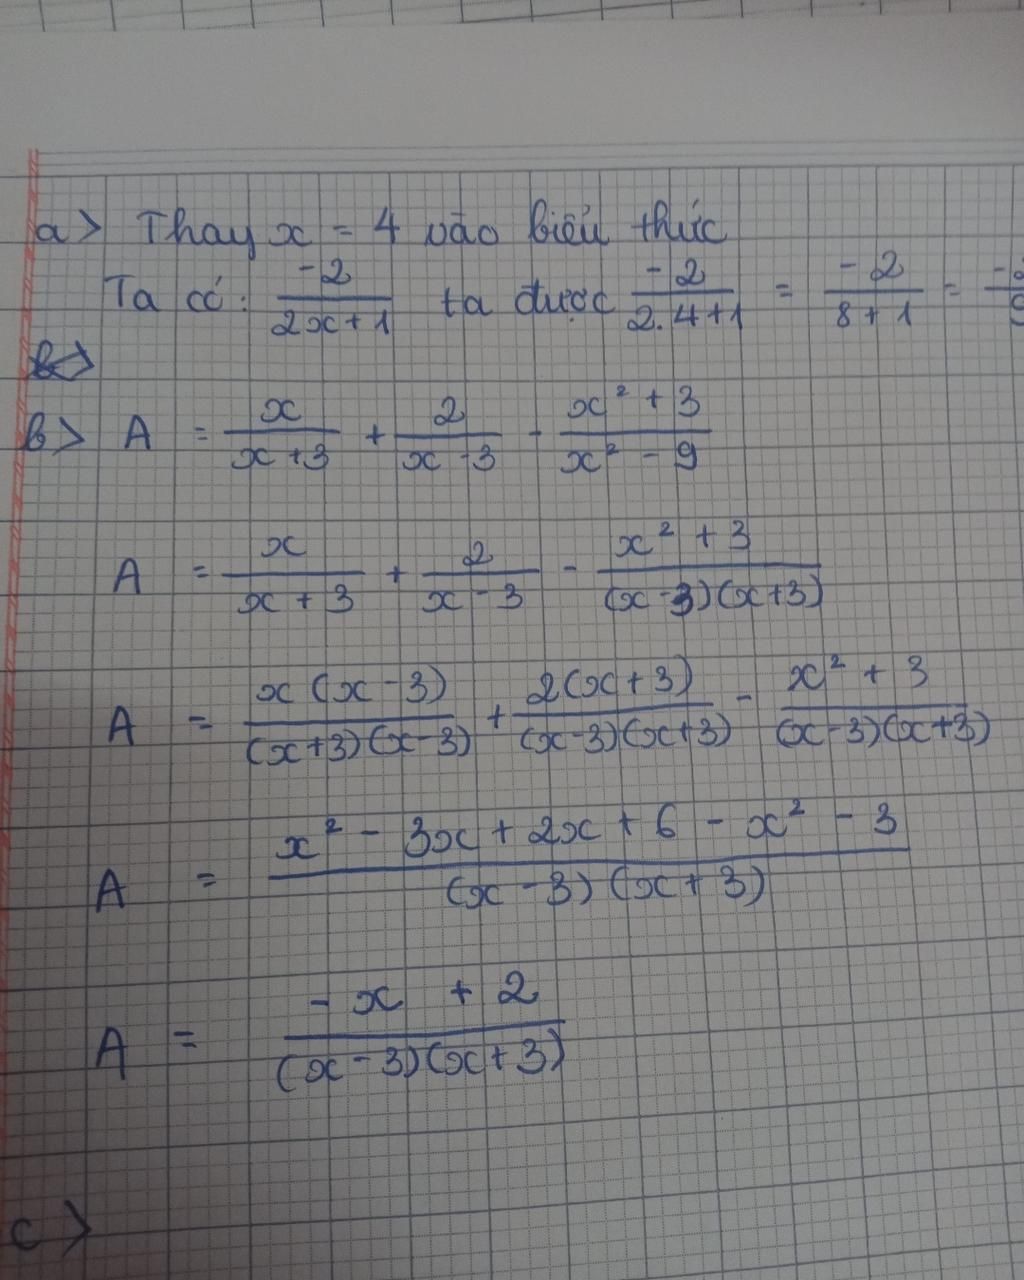 a> Thay x = 4 vào biểu thức
Ta có: -2/(2x+1) ta được -2/(2.4+1) = -2/(8+1) = -2/9
b>
b> A = x/(x+3) + 2/(x-3) - (x²+3)/(x²-9)
A = x/(x+3) + 2/(x-3) - (x²+3)/((x-3)(x+3))
A = x(x-3)/((x+3)(x-3)) + 2(x+3)/((x-3)(x+3)) - (x²+3)/((x-3)(x+3))
A = (x² - 3x + 2x + 6 - x² - 3)/((x-3)(x+3))
A = (-x + 2)/((x-3)(x+3))
c>